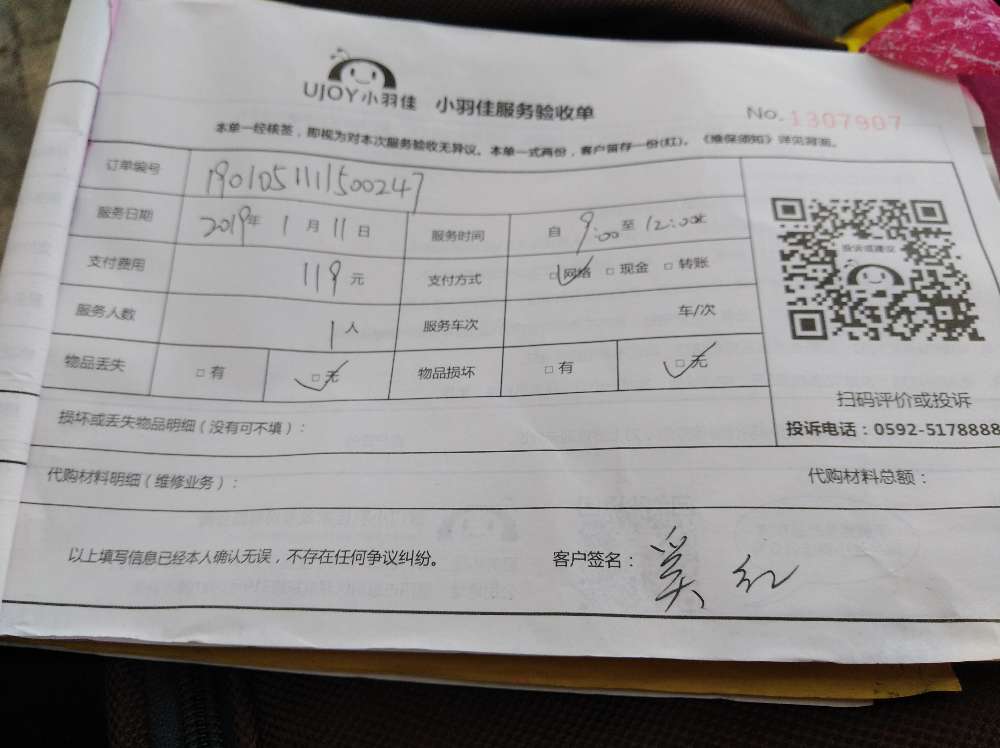 UJOY小羽佳 小羽佳服务验收单
No.1307907
本单一经核签，即视为对本次服务验收无异议。本单一式两份，客户留存一份(红)。《维保须知》详见背面。
订单编号 190105111500247
服务日期 2019年 1月 11日 服务时间 自 9:00 至 12:00
支付费用 119元 支付方式 □网络 □现金 □转账
服务人数 1人 服务车次 车/次
物品丢失 □有 □无 物品损坏 □有 □无
投诉或建议
扫码评价或投诉
投诉电话：0592-5178888
损坏或丢失物品明细（没有可不填）：
代购材料明细（维修业务）： 代购材料总额：
以上填写信息已经本人确认无误，不存在任何争议纠纷。 客户签名： 红